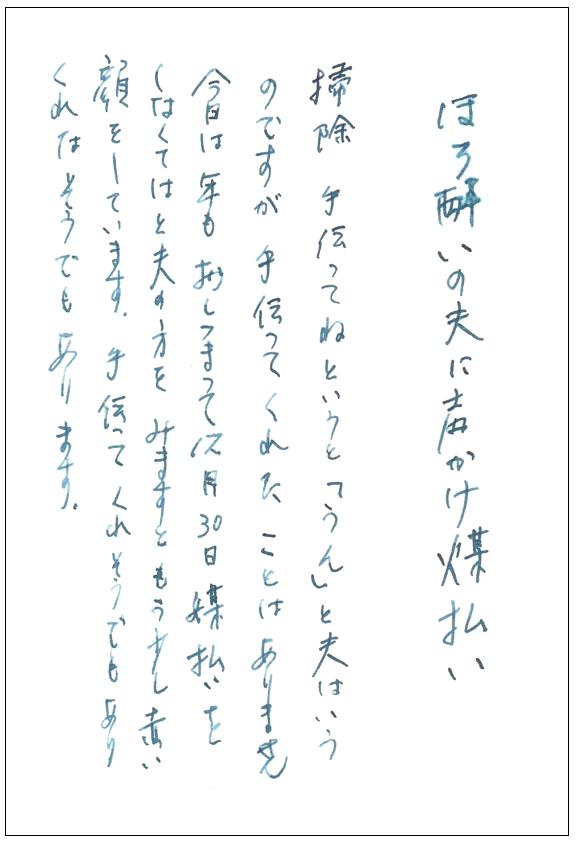 ほろ酔いの夫に声かけ煤払い
掃除 手伝ってねというと「うん」と夫はいう
のですが 手伝ってくれたことはありません
今日は年も押しつまって12月30日 煤払いを
しなくてはと夫の方をみますともう少し赤い
顔をしています。手伝ってくれそうでもあり
くれなそうでもあります。